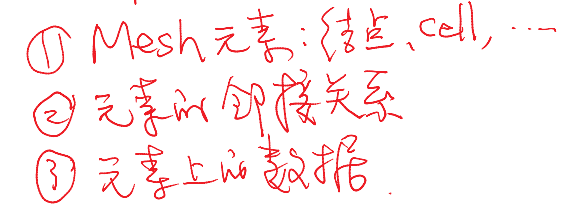 ① Mesh 元素：结点、cell，…
② 元素的邻接关系
③ 元素上的数据.